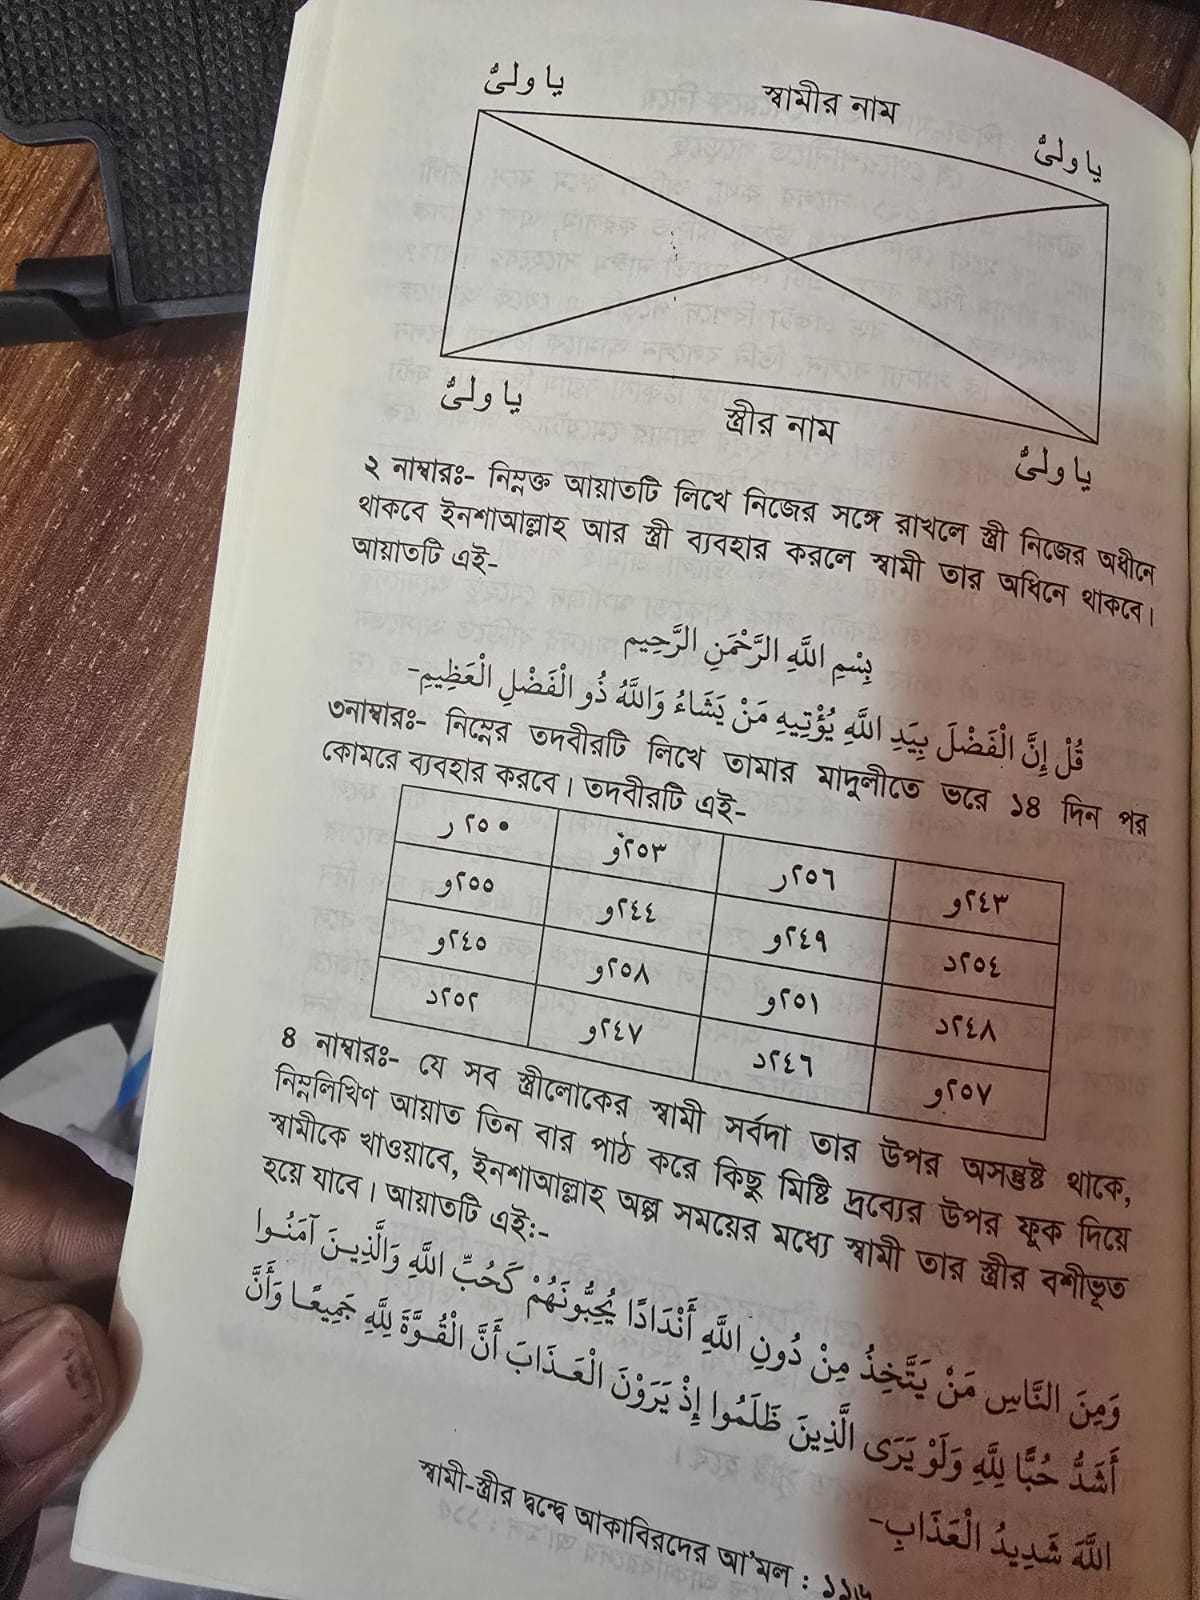 يا ولىُّ
স্বামীর নাম
يا ولىُّ
يا ولىُّ
স্ত্রীর নাম
يا ولىُّ
২ নাম্বারঃ- নিম্নক্ত আয়াতটি লিখে নিজের সঙ্গে রাখলে স্ত্রী নিজের অধীনে
থাকবে ইনশাআল্লাহ আর স্ত্রী ব্যবহার করলে স্বামী তার অধিনে থাকবে।
আয়াতটি এই-
بِسْمِ اللَّهِ الرَّحْمَنِ الرَّحِيم
قُلْ إِنَّ الْفَضْلَ بِيَدِ اللَّهِ يُؤْتِيهِ مَنْ يَشَاءُ وَاللَّهُ ذُو الْفَضْلِ الْعَظِيمِ-
৩নাম্বারঃ- নিম্নের তদবীরটি লিখে তামার মাদুলীতে ভরে ১৪ দিন পর
কোমরে ব্যবহার করবে। তদবীরটি এই-
٢٥٠ر ٢٥٣و ٢٥٦ر ٢٤٣و
٢٥٥و ٢٤٤و ٢٤٩و ٢٥٤د
٢٤٥و ٢٥٨و ٢٥١و ٢٤٨د
٢٥٢د ٢٤٧و ٢٤٦د ٢٥٧و
৪ নাম্বারঃ- যে সব স্ত্রীলোকের স্বামী সর্বদা তার উপর অসন্তুষ্ট থাকে,
নিম্নলিখিণ আয়াত তিন বার পাঠ করে কিছু মিষ্টি দ্রব্যের উপর ফূক দিয়ে
স্বামীকে খাওয়াবে, ইনশাআল্লাহ অল্প সময়ের মধ্যে স্বামী তার স্ত্রীর বশীভূত
হয়ে যাবে। আয়াতটি এই:-
وَمِنَ النَّاسِ مَنْ يَتَّخِذُ مِنْ دُونِ اللَّهِ أَنْدَادًا يُحِبُّونَهُمْ كَحُبِّ اللَّهِ وَالَّذِينَ آمَنُوا
أَشَدُّ حُبًّا لِلَّهِ وَلَوْ يَرَى الَّذِينَ ظَلَمُوا إِذْ يَرَوْنَ الْعَذَابَ أَنَّ الْقُوَّةَ لِلَّهِ جَمِيعًا وَأَنَّ
اللَّهَ شَدِيدُ الْعَذَابِ-
স্বামী-স্ত্রীর দ্বন্দ্বে আকাবিরদের আ'মল : ১১৬